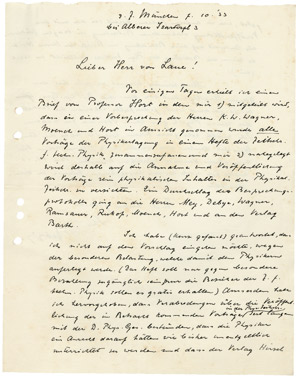 z. Z. München 7. 10. '33
bei Alberer Isartorpl 3
Lieber Herr von Laue!
Vor einigen Tagen erhielt ich einen
Brief von Professor Hort in dem mir mitgeteilt wird,
dass in einer Vorbesprechung der Herren K. W. Wagner,
und Hort in Aussicht genommen wurde alle
Vorträge der Physikertagung in einem Hefte der Zeitschr.
f. techn. Physik zusammenzufassen und mir nahegelegt
wird deshalb auf Annahme und Veröffentlichung
der Vorträge rein physikalischen Inhaltes in der Physikal.
Zeitschr. zu verzichten. Ein Durchschlag des Besprechungs-
protokolls ging an die Herren Mey, Debye, Wagner,
Ramsauer, Hort und an den Verlag
Barth.
Ich habe (kurz gefasst) geantwortet, dass
ich nicht auf den Vorschlag eingehen möchte, wegen
der besonderen Belastung, welche damit den Physikern
auferlegt werde. (Das Heft soll nur gegen besondere
Bezahlung zugänglich sein für die Bezieher der Z. f.
techn. Physik sollen es gratis erhalten) Ausserdem habe
ich hervorgehoben, dass Vereinbarungen über die Veröffent-
lichung der in Betracht kommenden Vorträge
mit der D. Phys. Ges. bestünden, dass die Physiker
ein Anrecht darauf hätten wie bisher
unterrichtet zu werden und dass der Verlag Hirzel